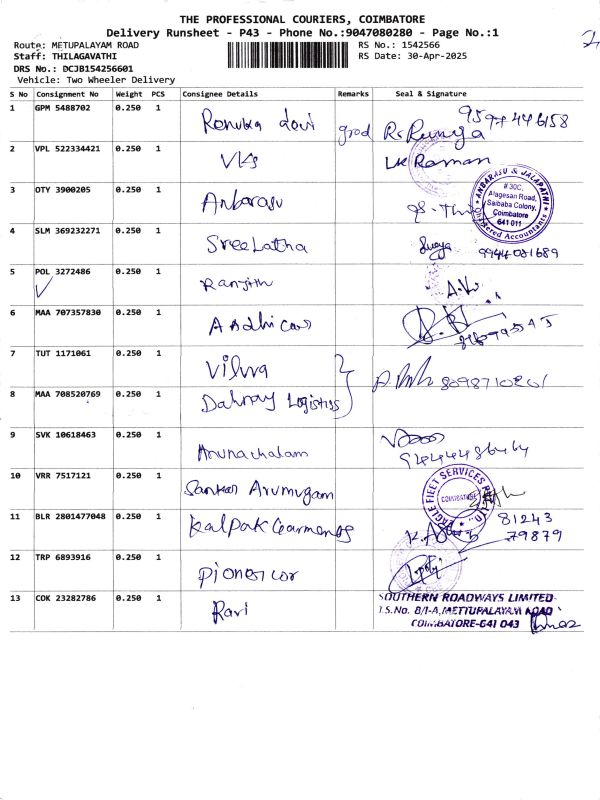 THE PROFESSIONAL COURIERS, COIMBATORE
Delivery Runsheet - P43 - Phone No.:9047080280 - Page No.:1
Route: METUPALAYAM ROAD
RS No.: 1542566
Staff: THILAGAVATHI
RS Date: 30-Apr-2025
DRS No.: DCJB154256601
Vehicle: Two Wheeler Delivery
S No Consignment No Weight PCS Consignee Details Remarks Seal & Signature
1 GPM 5488702 0.250 1 Renuka devi
2 VPL 522334421 0.250 1 VKs
3 OTY 3900205 0.250 1 Anbarasu
ANBARASU & JALAPATHI
# 30C,
Alagesan Road,
Saibaba Colony,
Coimbatore
641 011
Chartered Accountants
4 SLM 369232271 0.250 1 SreeLatha 9944031689
5 POL 3272486 0.250 1 Ranjith A.K.
6 MAA 707357830 0.250 1 Aadhicos
7 TUT 1171061 0.250 1 Vilva
8 MAA 708520769 0.250 1 Logistics
9 SVK 10618463 0.250 1 Arunachalam
10 VRR 7517121 0.250 1 Sankar Arumugam
EAGLE FLEET SERVICES
COIMBATORE
11 BLR 2801477048 0.250 1 Kalpak Garments 81243
79879
12 TRP 6893916 0.250 1
13 COK 23282786 0.250 1 Ravi
SOUTHERN ROADWAYS LIMITED
T.S.No. 8/1-A, METTUPALAYAM ROAD
COIMBATORE-641 043